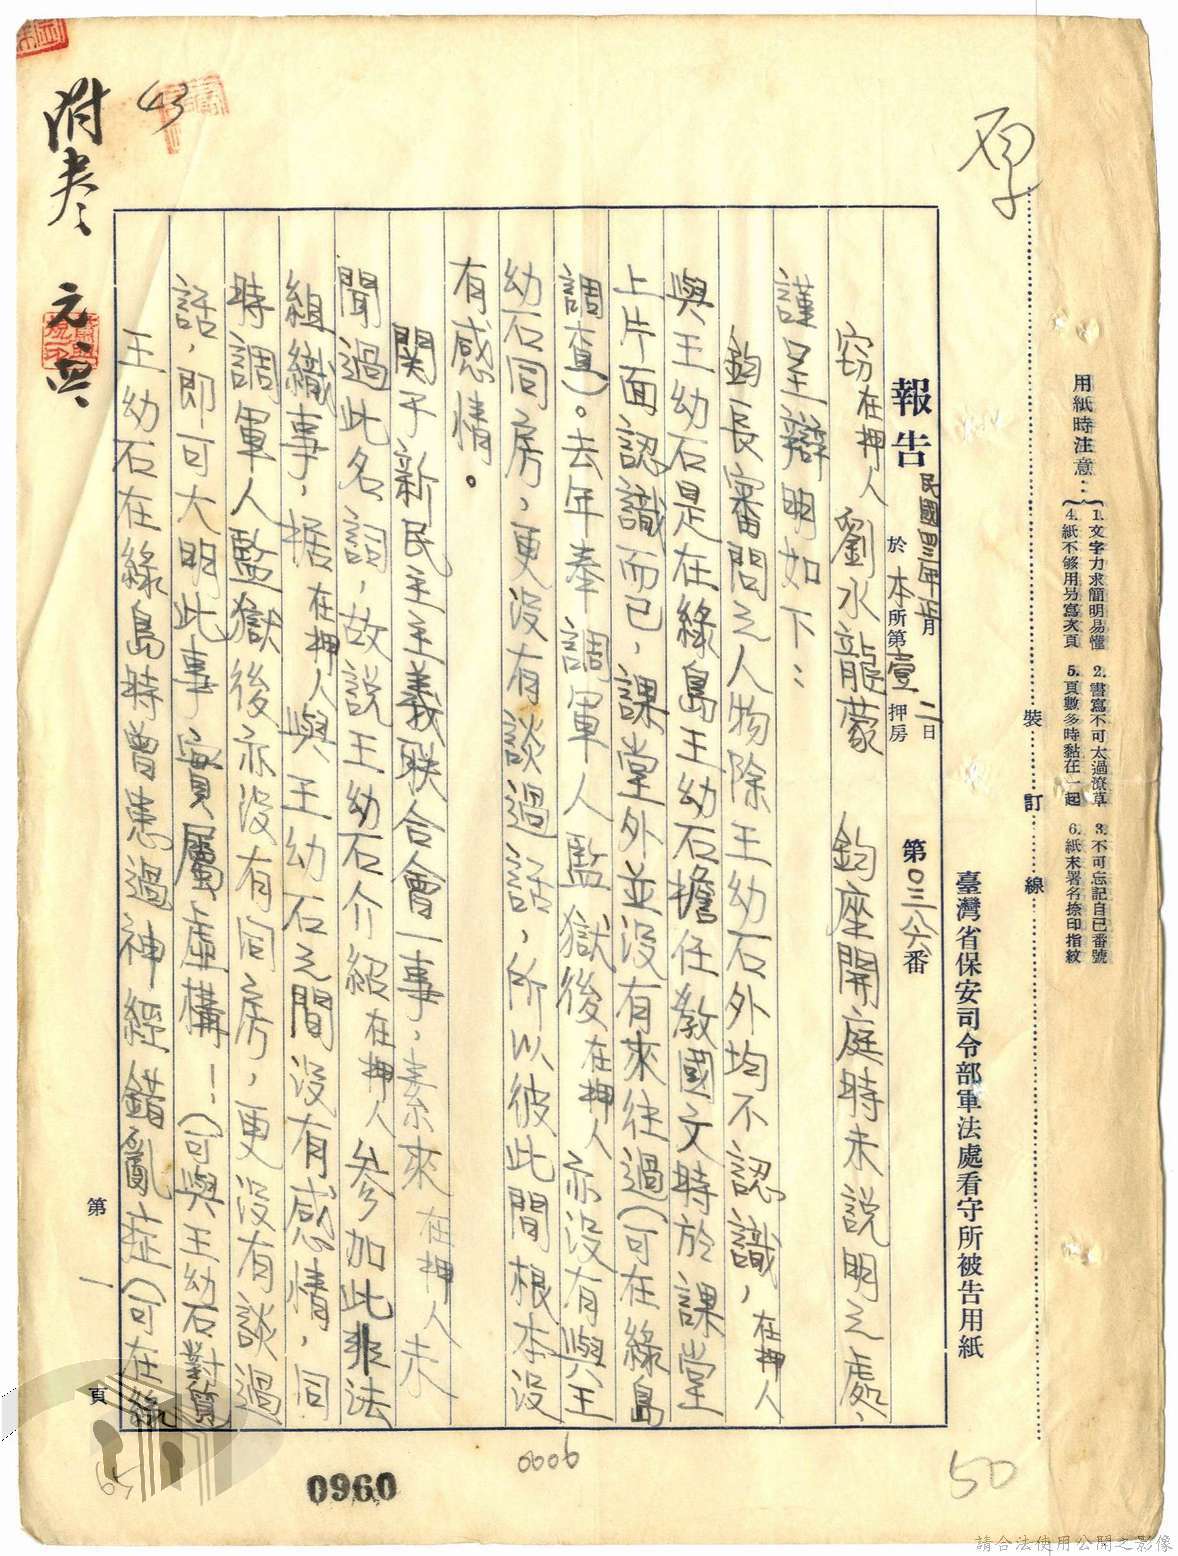 用紙時注意：
1. 文字力求簡明易懂 2. 書寫不可太過潦草 3. 不可忘記自己番號
4. 紙不够用另寫次頁 5. 頁數多時黏在一起 6. 紙末署名捺印指紋
裝 訂 線
臺灣省保安司令部軍法處看守所被告用紙
報告 民國四三年正月二日 於本所第壹押房 第０三八六番
窃在押人劉水龍蒙　鈞座開庭時未説明之處、
謹呈辯明如下：
鈞長審問之人物除王幼石外均不認識，在押人
與王幼石是在綠島王幼石擔任教國文時於課堂
上片面認識而已，課堂外並没有來往過（可在綠島
調查）。去年奉調軍人監獄後在押人亦没有與王
幼石同房，更没有談過話，所以彼此間根本没
有感情。
関于新民主主義联合會一事，素來在押人未
聞過此名詞，故説王幼石介紹在押人参加此非法
組織事，据在押人與王幼石之間没有感情，同
時調軍人監獄後亦没有同房，更没有談過
話，即可大明此事實屬虛構！（可與王幼石對質
王幼石在綠島時曾患過神經錯亂症（可在綠
第一頁
附卷
43
50
0006
65
0960
請合法使用公開之影像